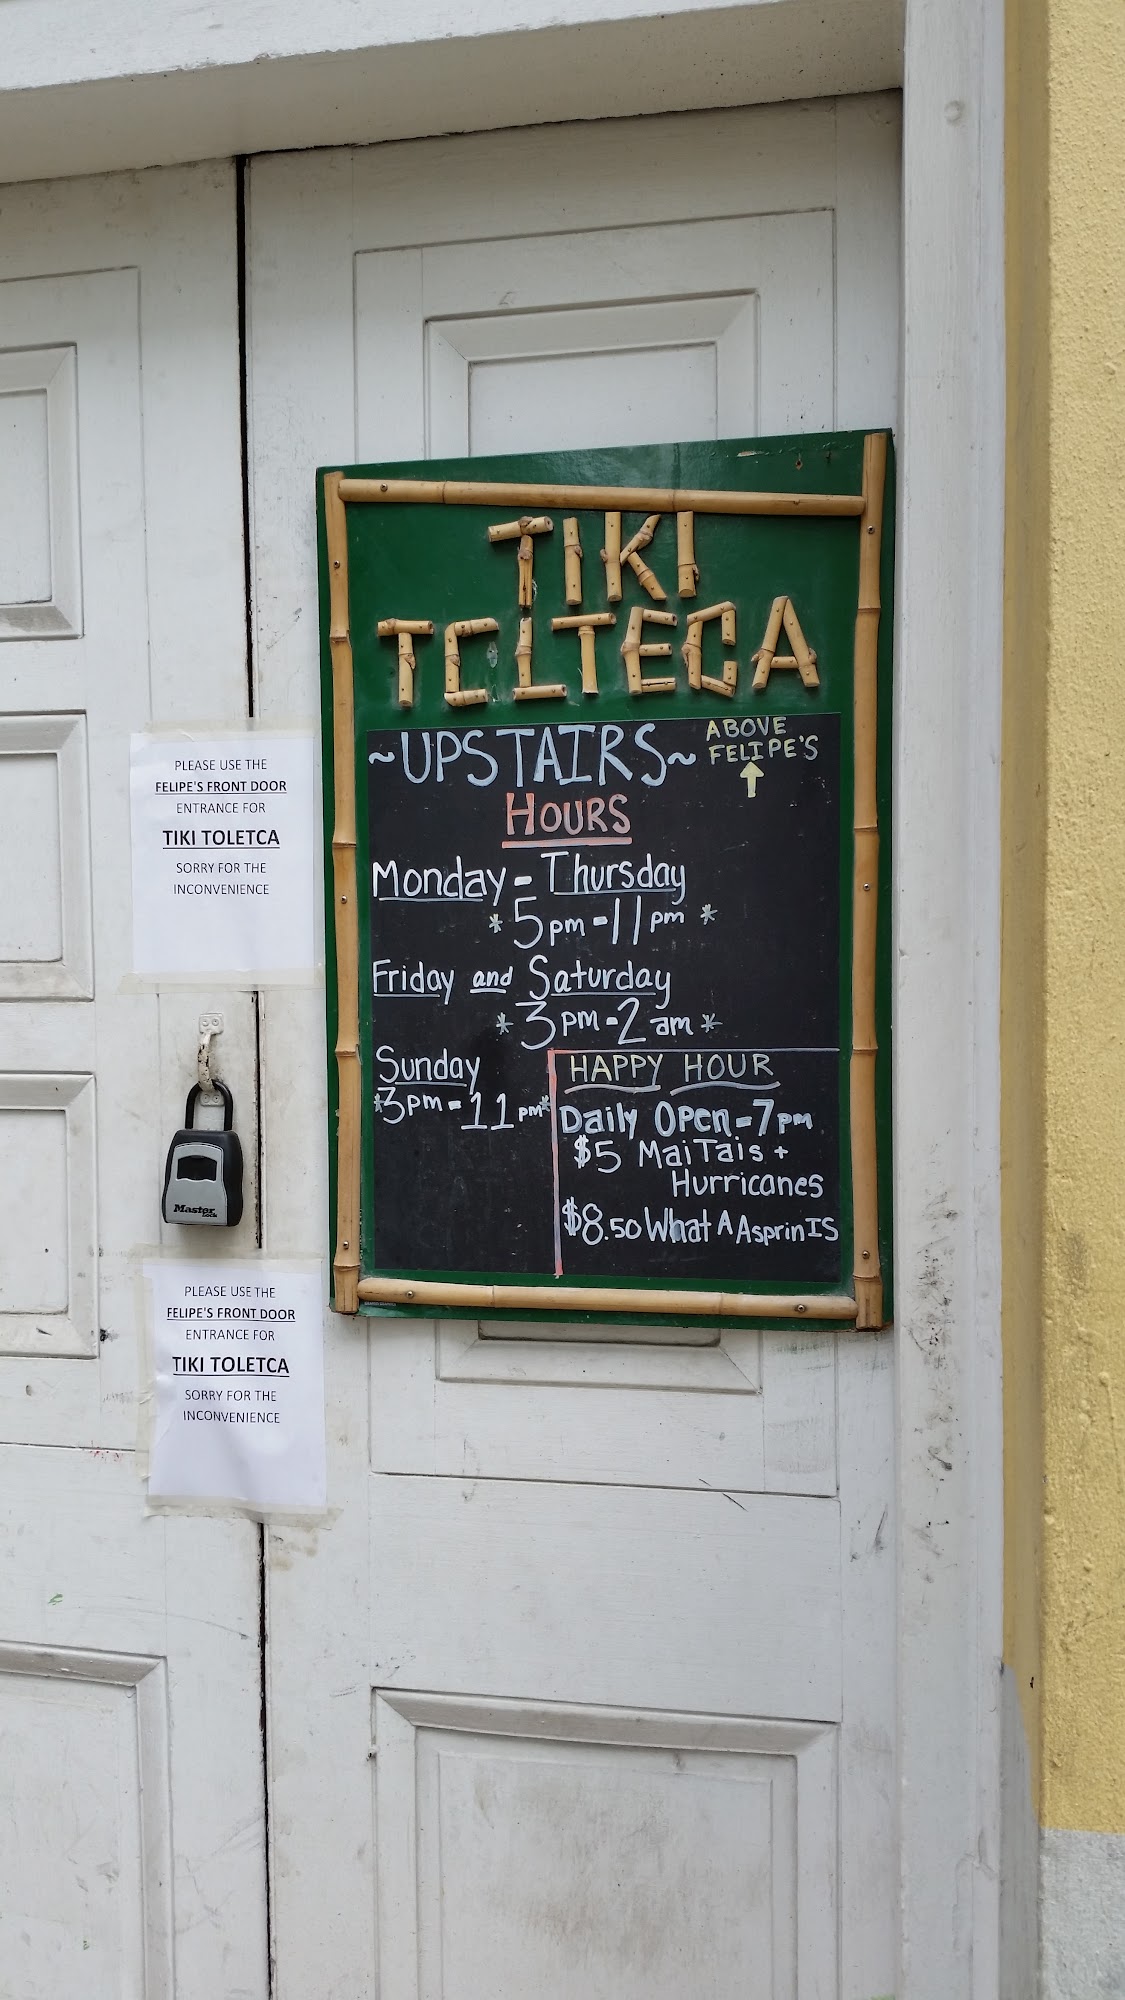 TIKI
TOLTECA
~UPSTAIRS~
ABOVE
FELIPE'S
HOURS
Monday - Thursday
* 5pm - 11pm *
Friday and Saturday
* 3pm - 2am *
Sunday
*3pm - 11pm*
HAPPY HOUR
Daily Open - 7pm
$5 MaiTais +
Hurricanes
$8.50 What A Asprin IS
PLEASE USE THE
FELIPE'S FRONT DOOR
ENTRANCE FOR
TIKI TOLETCA
SORRY FOR THE
INCONVENIENCE
Master
Lock
PLEASE USE THE
FELIPE'S FRONT DOOR
ENTRANCE FOR
TIKI TOLETCA
SORRY FOR THE
INCONVENIENCE